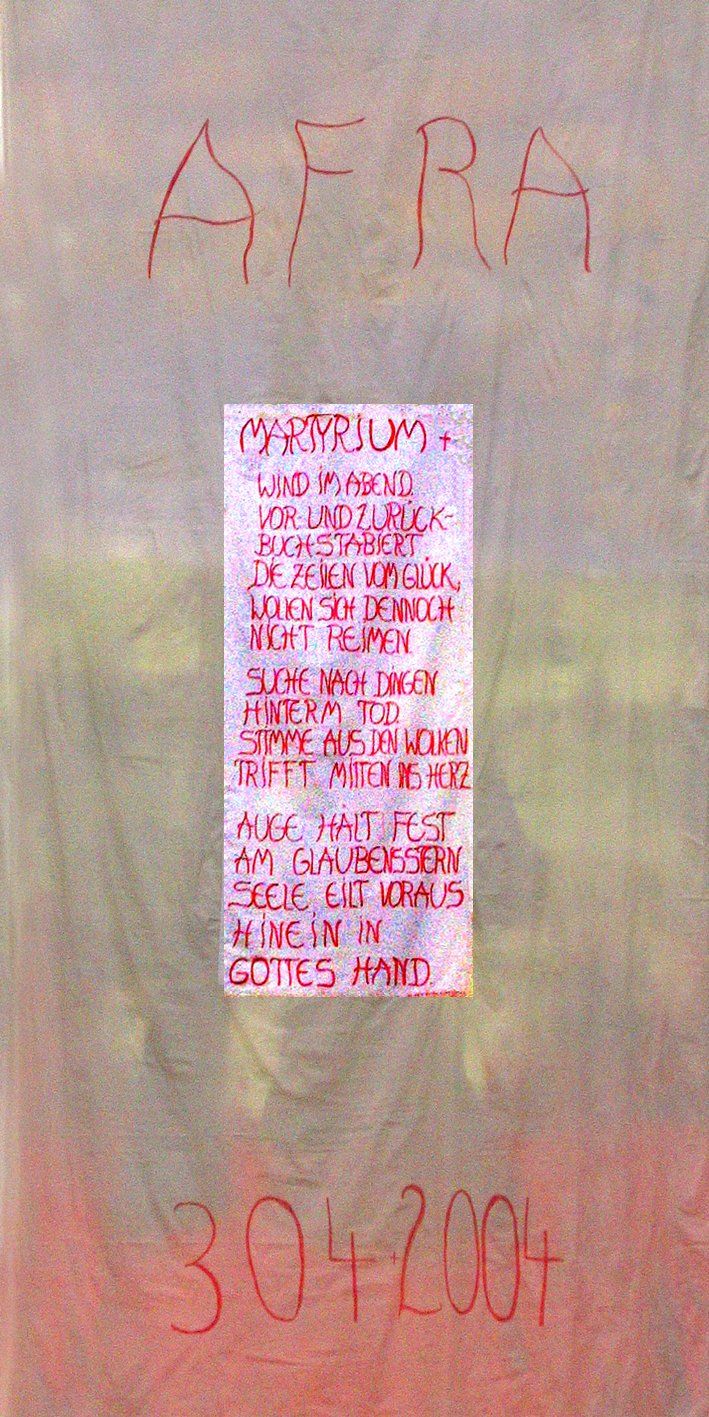 AFRA
MARTYRIUM +
WIND IM ABEND.
VOR UND ZURÜCK-
BUCHSTABIERT
DIE ZEILEN VOM GLÜCK,
WOLLEN SICH DENNOCH
NICHT REIMEN
SUCHE NACH DINGEN
HINTERM TOD.
STIMME AUS DEN WOLKEN
TRIFFT MITTEN INS HERZ
AUGE HÄLT FEST
AM GLAUBENSSTERN
SEELE EILT VORAUS
HINEIN IN
GOTTES HAND.
304.2004